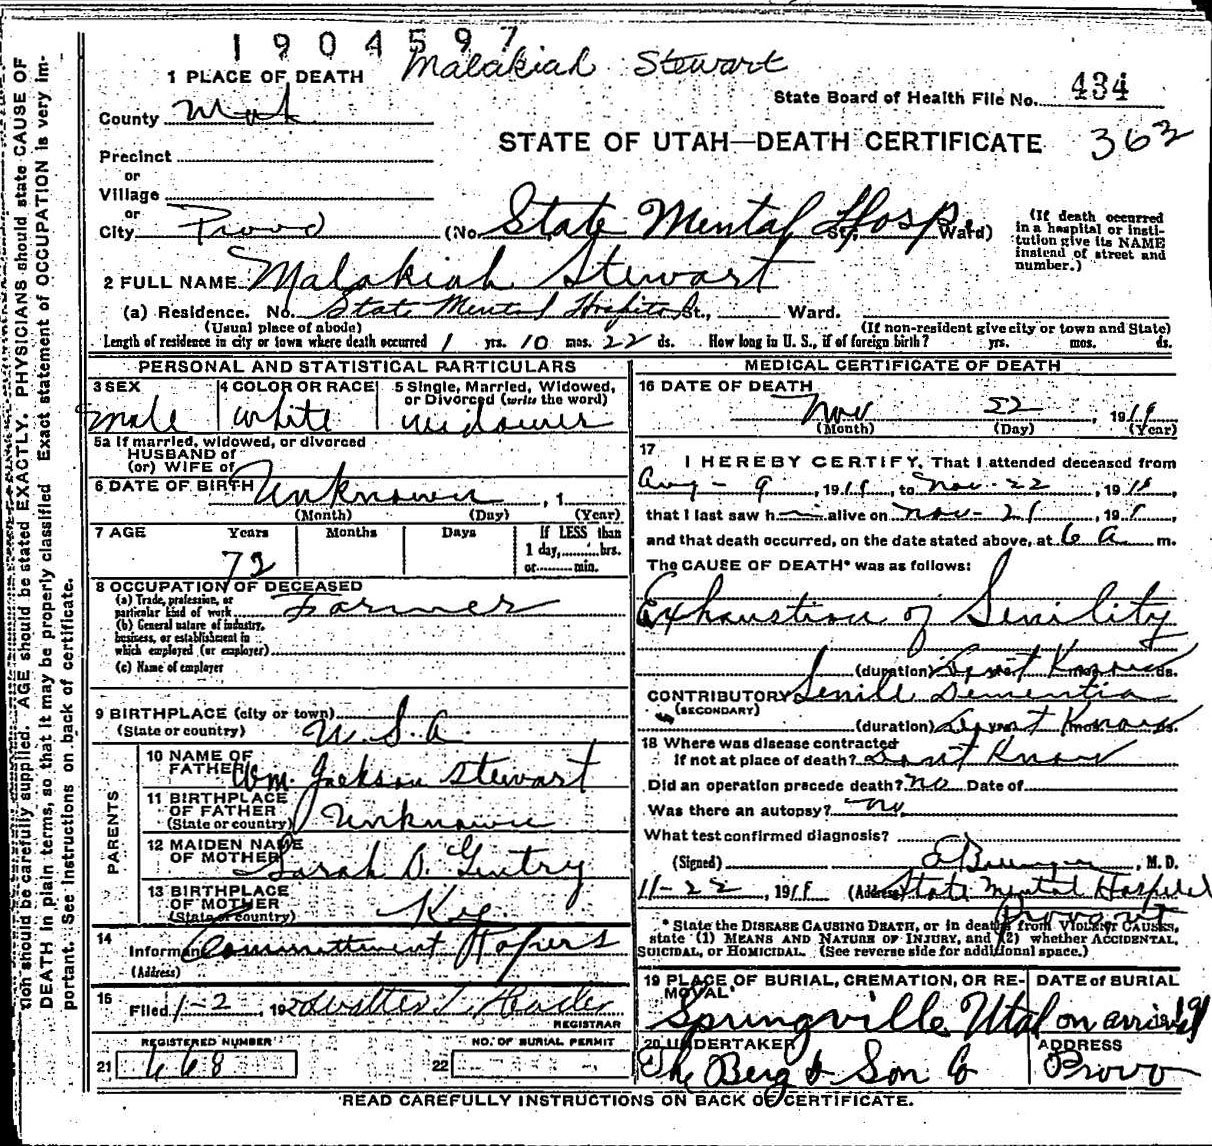 1904597
Malakiah Stewart
1 PLACE OF DEATH
State Board of Health File No. 434
County
STATE OF UTAH—DEATH CERTIFICATE 363
Precinct
or
Village
or
City Provo (No. State Mental Hosp. St., Ward)
(If death occurred in a hospital or institution give its NAME instead of street and number.)
2 FULL NAME Malakiah Stewart
(a) Residence. No. State Mental Hospital St., Ward.
(Usual place of abode) (If non-resident give city or town and State)
Length of residence in city or town where death occurred 1 yrs. 10 mos. 22 ds. How long in U. S., if of foreign birth? yrs. mos. ds.
PERSONAL AND STATISTICAL PARTICULARS
3 SEX male
4 COLOR OR RACE white
5 Single, Married, Widowed, or Divorced (write the word) widower
5a If married, widowed, or divorced
HUSBAND of
(or) WIFE of
6 DATE OF BIRTH Unknown, 1
(Month) (Day) (Year)
7 AGE Years Months Days If LESS than
1 day, hrs.
or min.
73
8 OCCUPATION OF DECEASED
(a) Trade, profession, or
particular kind of work Farmer
(b) General nature of industry,
business, or establishment in
which employed (or employer)
(c) Name of employer
9 BIRTHPLACE (city or town)
(State or country) U.S.A
PARENTS
10 NAME OF
FATHER Wm. Jackson Stewart
11 BIRTHPLACE
OF FATHER
(State or country) Unknown
12 MAIDEN NAME
OF MOTHER Sarah O. Gentry
13 BIRTHPLACE
OF MOTHER
(State or country) Ky
14
Informant Committment Papers
(Address)
15
Filed 1-2, 192
REGISTRAR
REGISTERED NUMBER
21 668
NO. OF BURIAL PERMIT
22
MEDICAL CERTIFICATE OF DEATH
16 DATE OF DEATH
Nov 22, 1919
(Month) (Day) (Year)
17
I HEREBY CERTIFY, That I attended deceased from
Aug - 9, 1919, to Nov. 22, 191
that I last saw h alive on Nov - 21, 191
and that death occurred, on the date stated above, at 6 a m.
The CAUSE OF DEATH* was as follows:
Exhaustion of Senility
(duration) Dont Know ds.
CONTRIBUTORY Senile Dementia
(SECONDARY)
(duration) Dont Know mos. ds.
18 Where was disease contracted
if not at place of death? Dont Know
Did an operation precede death? No Date of
Was there an autopsy? No.
What test confirmed diagnosis?
(Signed) , M. D.
11-22, 1919 (Address) State Mental Hospital
Provo Ut
* State the DISEASE CAUSING DEATH, or in deaths from VIOLENT CAUSES,
state (1) MEANS AND NATURE OF INJURY, and (2) whether ACCIDENTAL,
SUICIDAL, or HOMICIDAL. (See reverse side for additional space.)
19 PLACE OF BURIAL, CREMATION, OR RE-
MOVAL
DATE of BURIAL
Springville Utah on arrival 191
20 UNDERTAKER
The Berg & Son Co
ADDRESS
Provo
READ CAREFULLY INSTRUCTIONS ON BACK OF CERTIFICATE.
tion should be carefully supplied. AGE should be stated EXACTLY. PHYSICIANS should state CAUSE OF
DEATH in plain terms, so that it may be properly classified. Exact statement of OCCUPATION is very im-
portant. See Instructions on back of certificate.